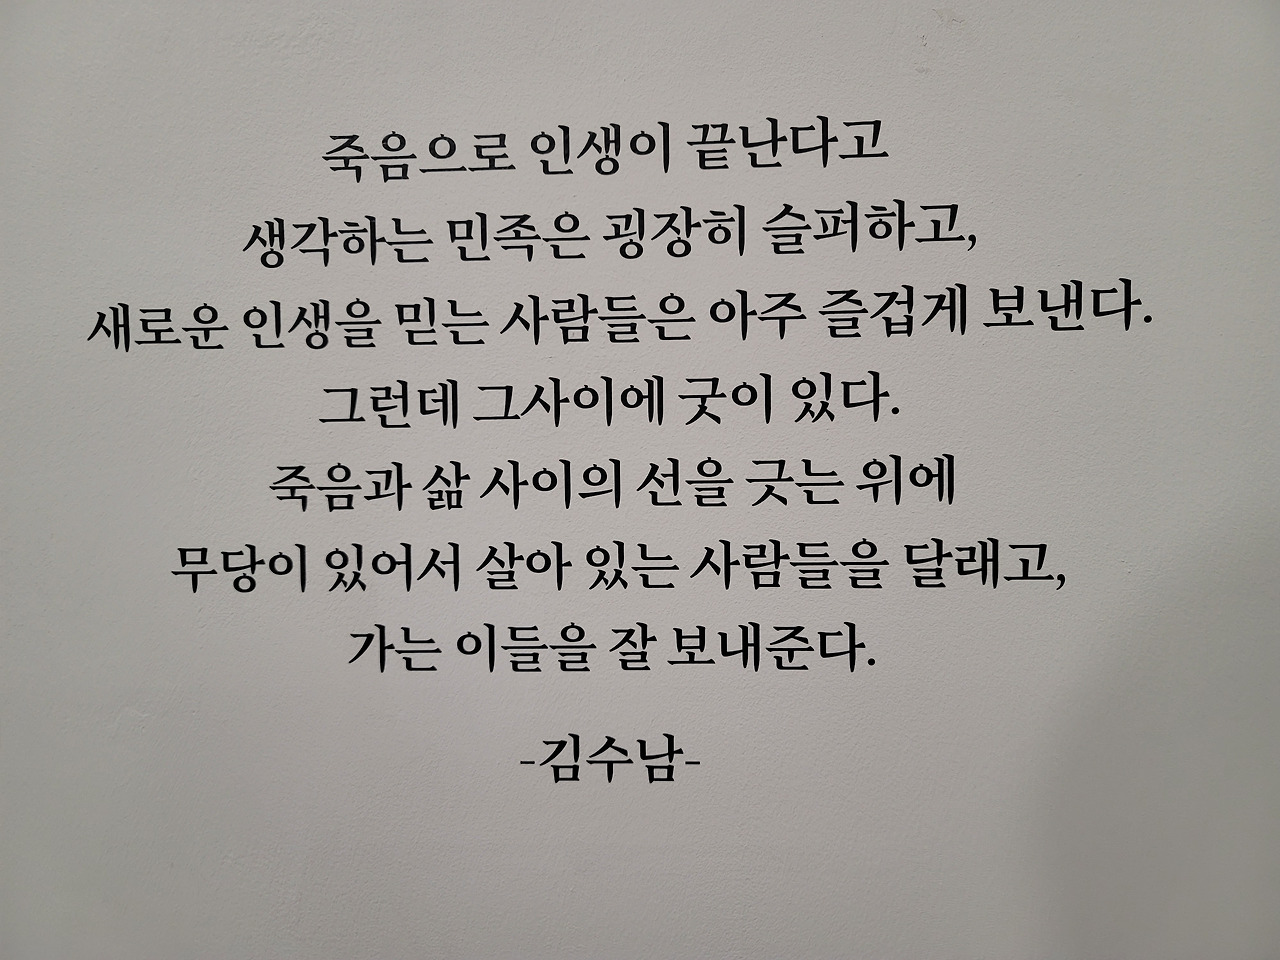 죽음으로 인생이 끝난다고
생각하는 민족은 굉장히 슬퍼하고,
새로운 인생을 믿는 사람들은 아주 즐겁게 보낸다.
그런데 그사이에 굿이 있다.
죽음과 삶 사이의 선을 긋는 위에
무당이 있어서 살아 있는 사람들을 달래고,
가는 이들을 잘 보내준다.
-김수남-